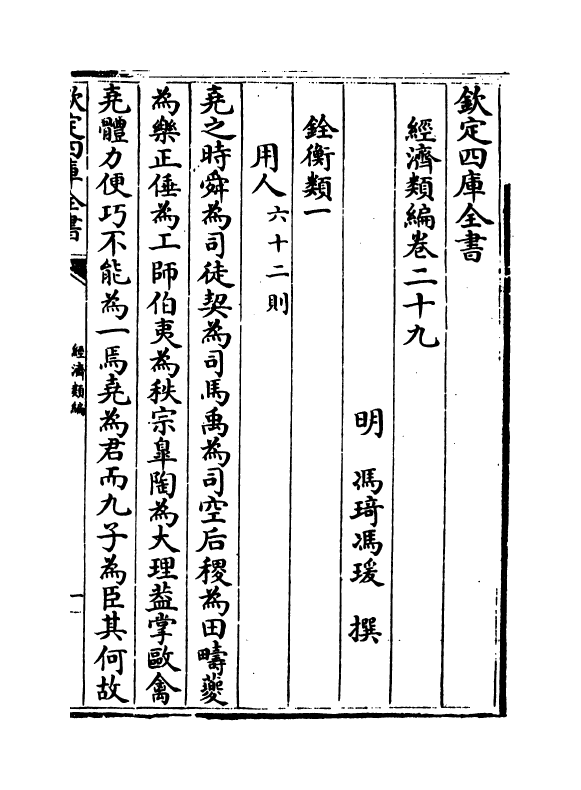 欽定四庫全書
經濟類編卷二十九
明 馮琦馮瑗 撰
銓衡類一
用人六十二則
堯之時舜為司徒契為司馬禹為司空后稷為田疇夔
為樂正倕為工師伯夷為秩宗臯陶為大理益掌歐禽
堯體力便巧不能為一焉堯為君而九子為臣其何故
欽定四庫全書
經濟類編
一